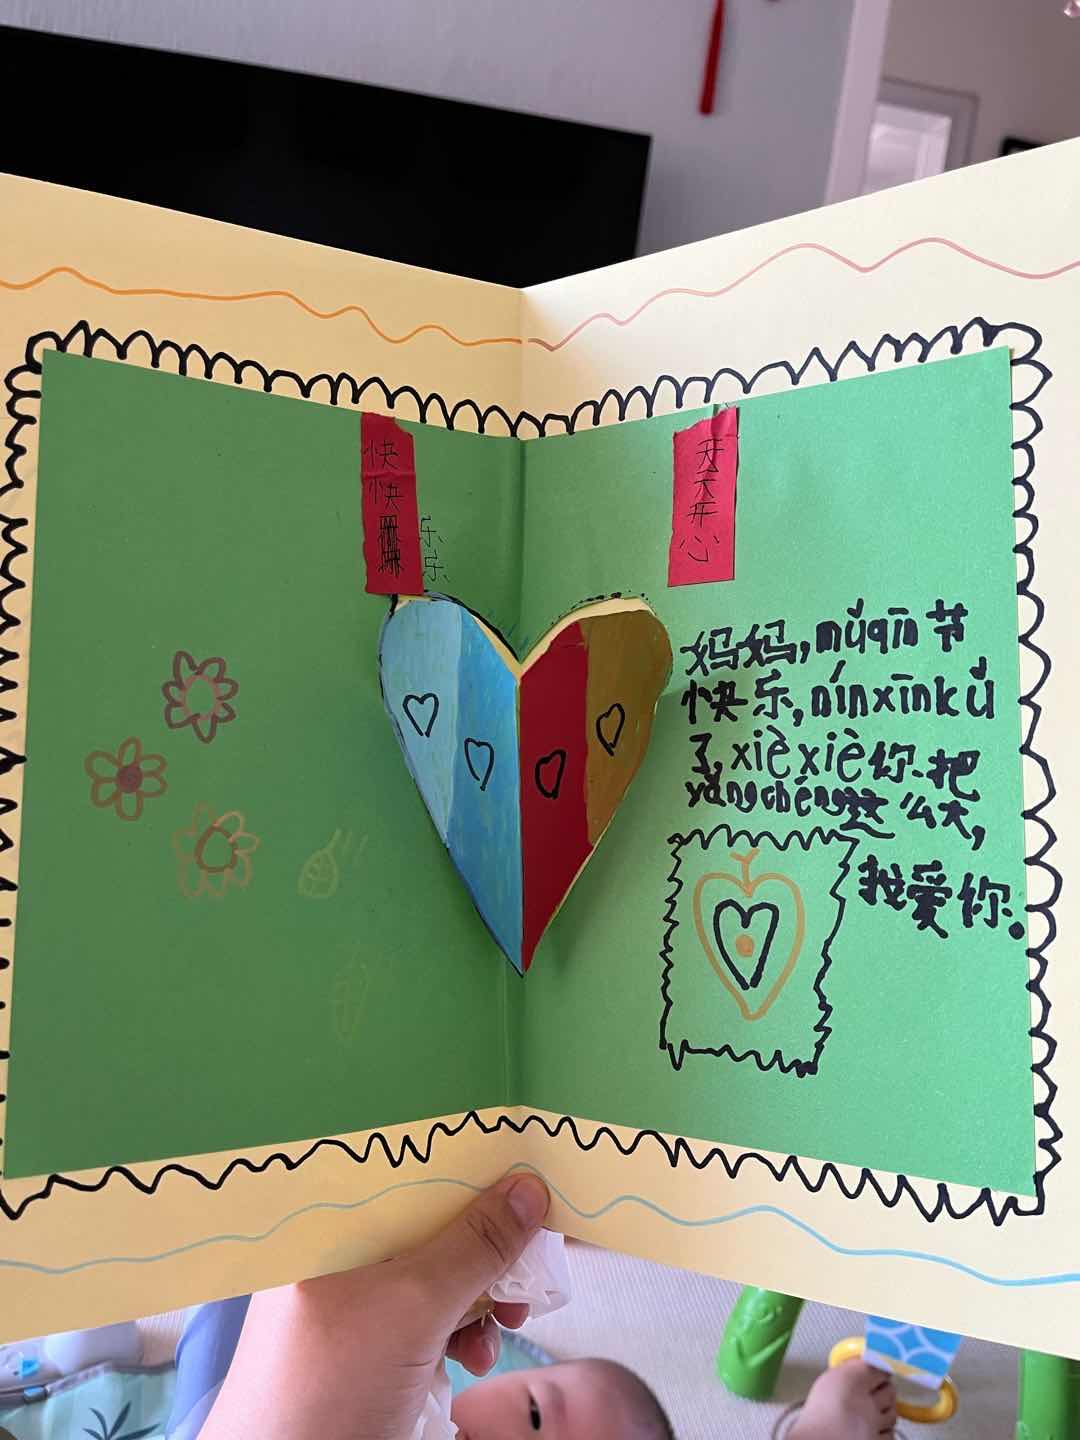 快快
乐乐
天天开心
妈妈,mǔqīn节
快乐,nínxīnkǔ
了,xièxiè你.把
yǎngchéng这么大,
我爱你.